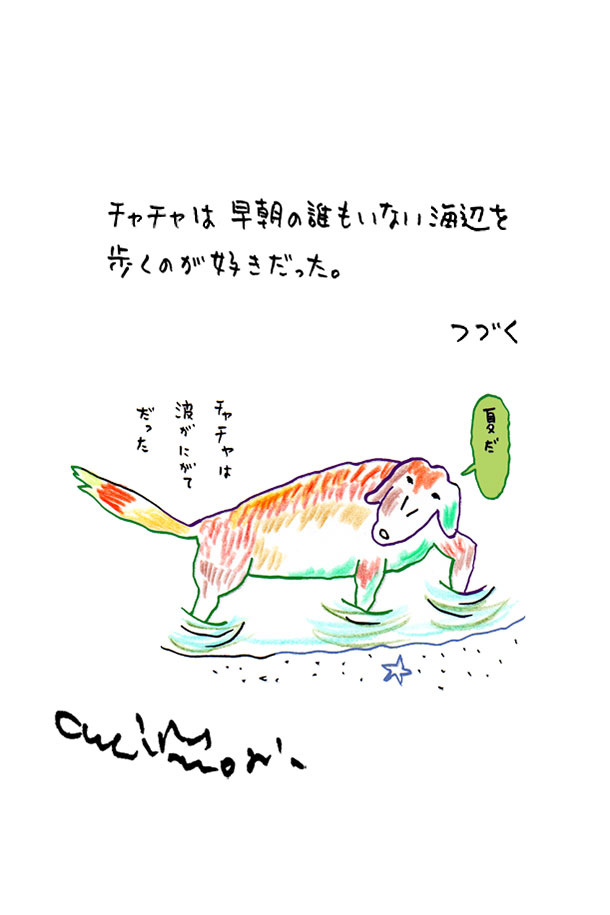 チャチャは 早朝の誰もいない海辺を
歩くのが好きだった。
つづく
夏だ
チャチャは
波がにがて
だった